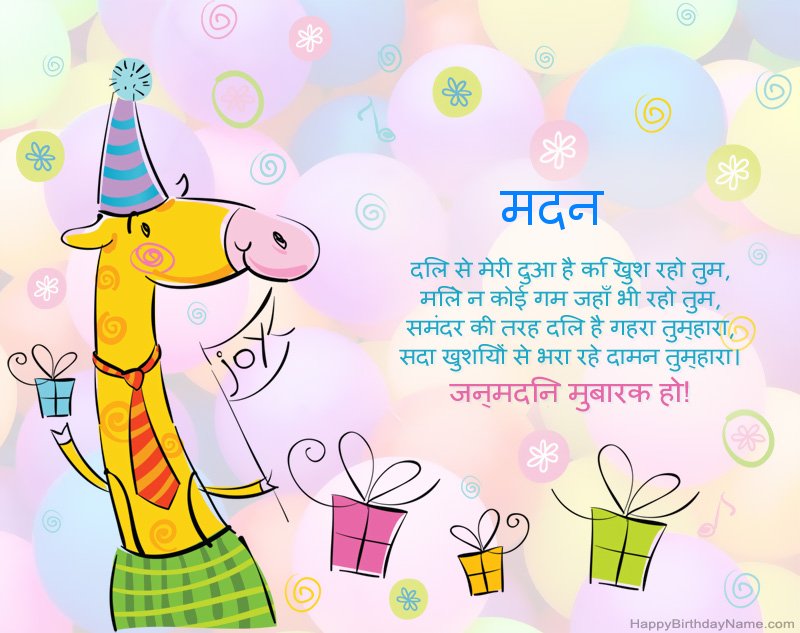 मदन
दलि से मेरी दुआ है कि खुश रहो तुम,
मलिे न कोई गम जहाँ भी रहो तुम,
समंदर की तरह दलि है गहरा तुम्हारा,
सदा खुशयिों से भरा रहे दामन तुम्हारा।
जन्मदनि मुबारक हो!
joy
HappyBirthdayName.com